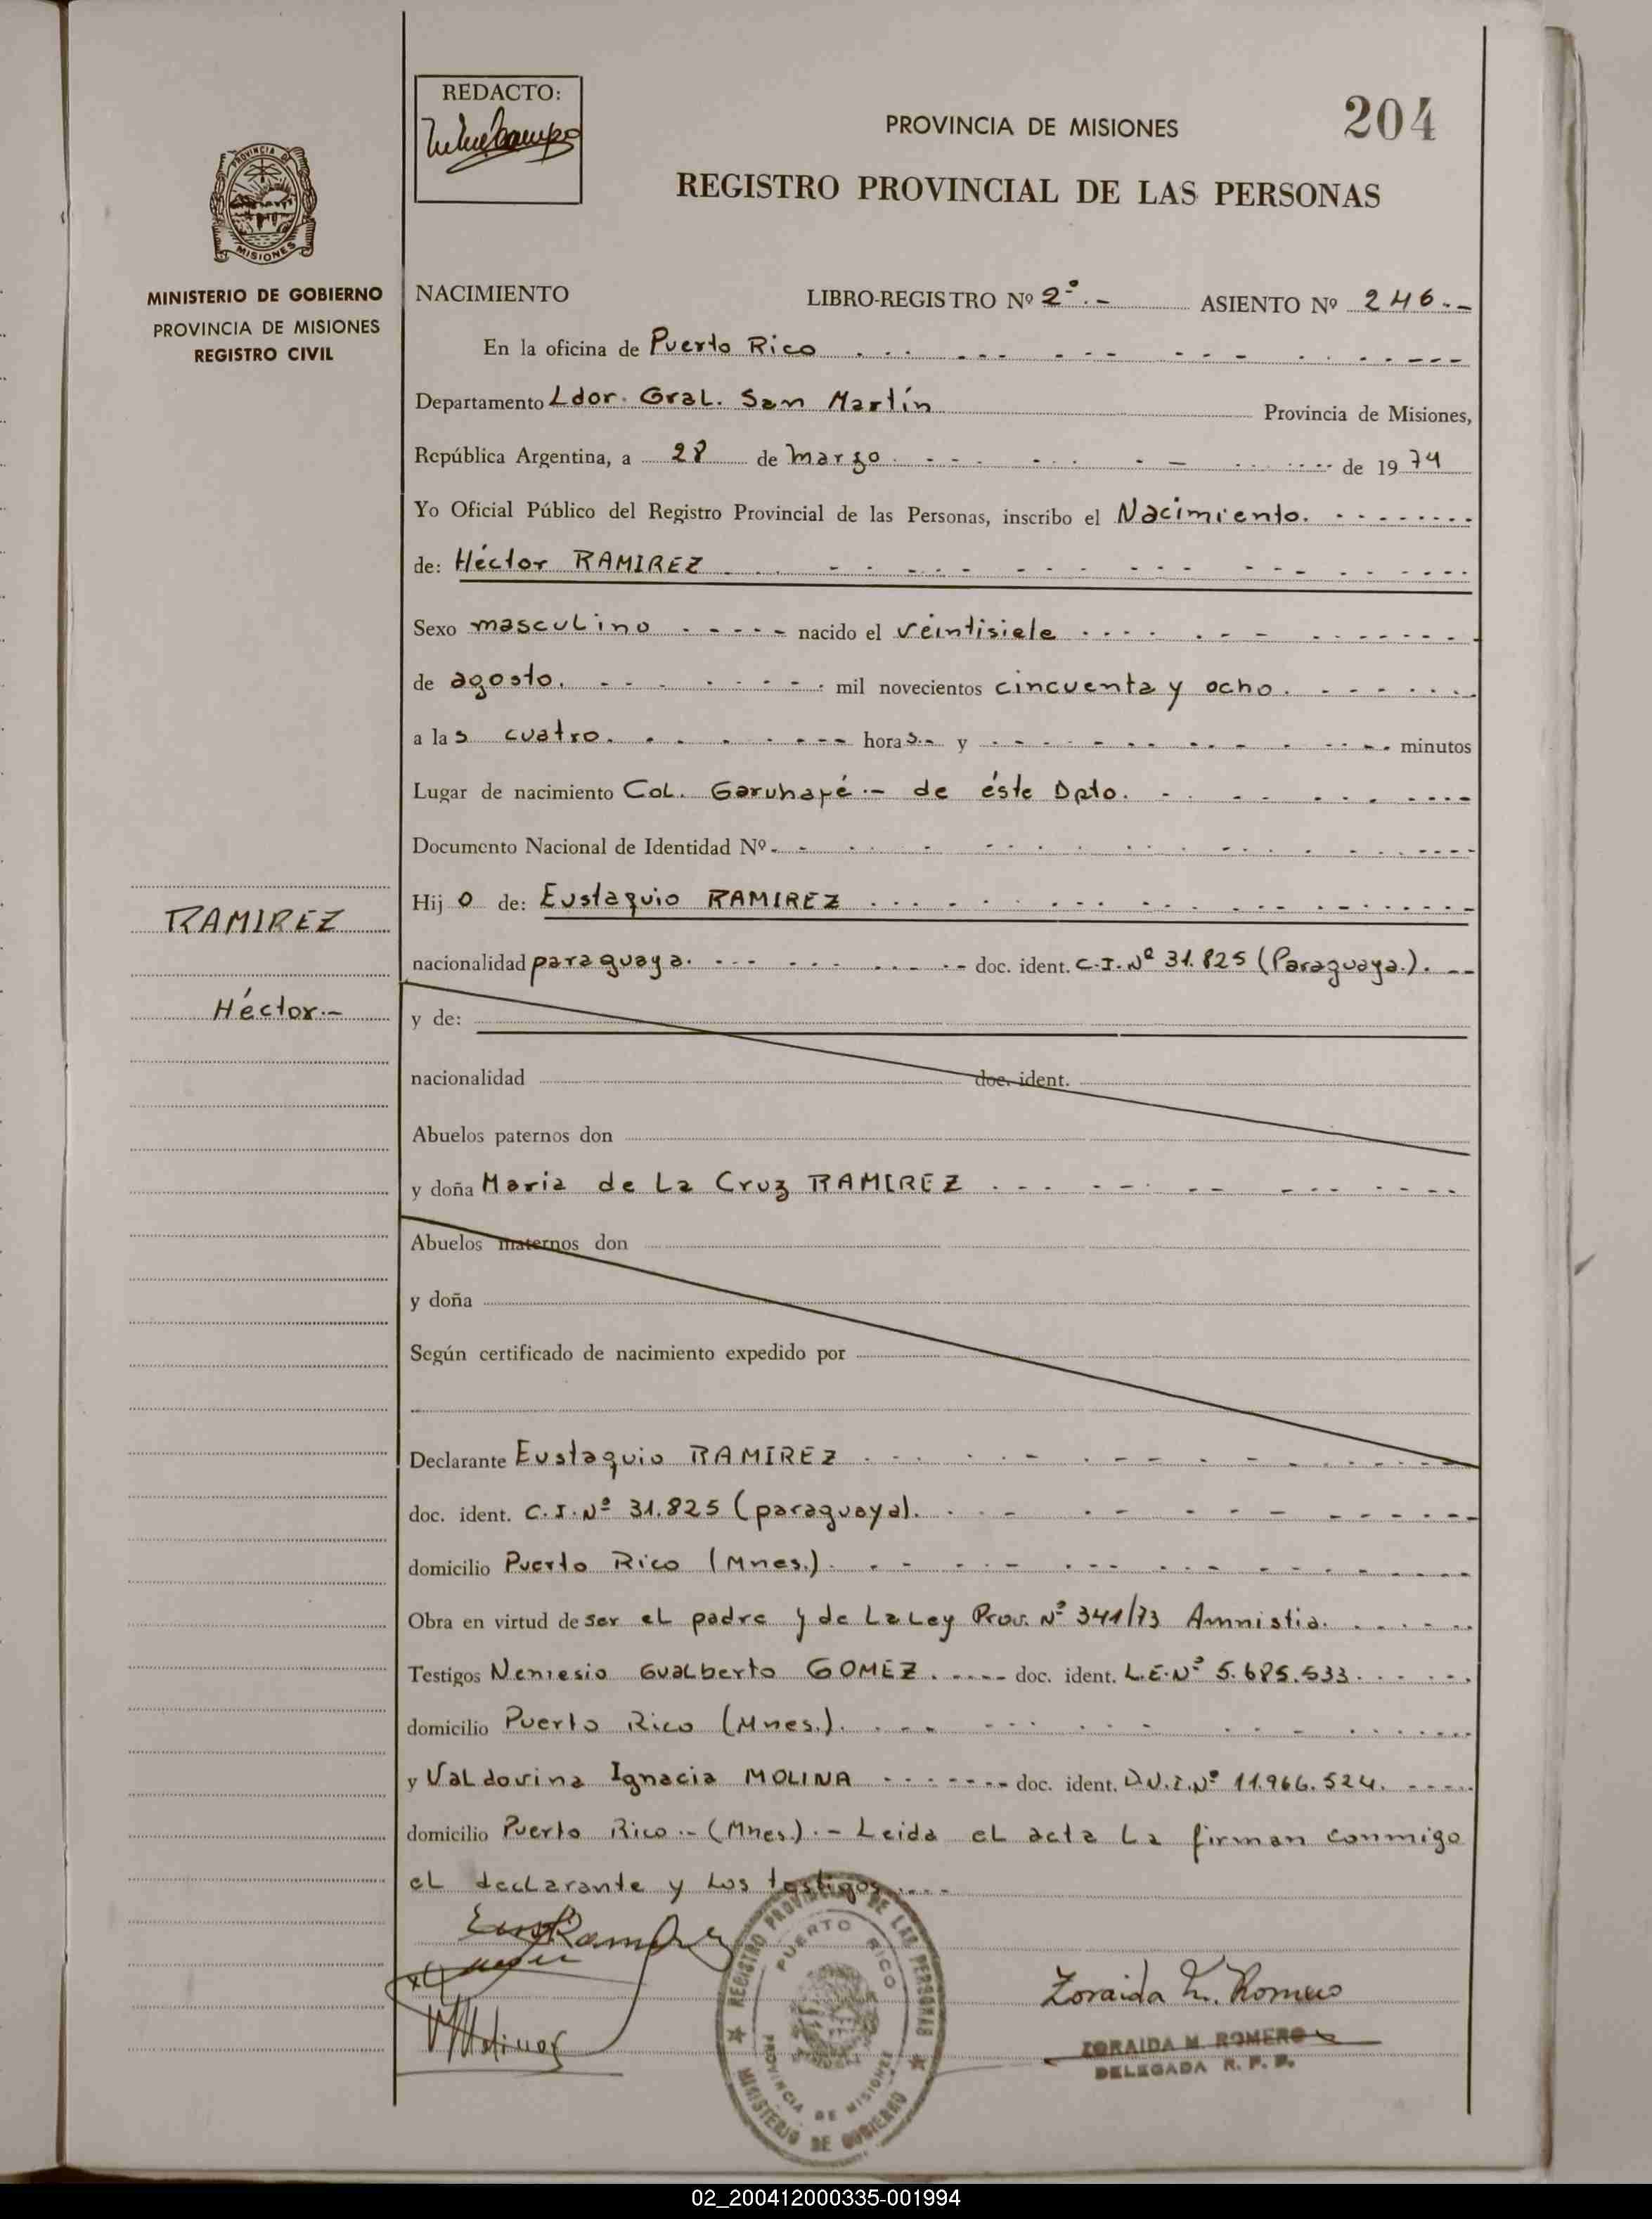 REDACTO:
PROVINCIA DE MISIONES
204
REGISTRO PROVINCIAL DE LAS PERSONAS
PROVINCIA DE
MISIONES
MINISTERIO DE GOBIERNO
PROVINCIA DE MISIONES
REGISTRO CIVIL
NACIMIENTO LIBRO-REGISTRO Nº 2º.- ASIENTO Nº 246.-
En la oficina de Puerto Rico
Departamento Ldor. Gral. San Martín Provincia de Misiones,
República Argentina, a 28 de marzo de 1974
Yo Oficial Público del Registro Provincial de las Personas, inscribo el Nacimiento.
de: Héctor RAMIREZ
Sexo masculino nacido el veintisiete
de agosto. mil novecientos cincuenta y ocho.
a las cuatro. horas.- y minutos
Lugar de nacimiento Col. Garuhapé.- de éste Dpto.
Documento Nacional de Identidad Nº
RAMIREZ
Héctor.-
Hijo de: Eustaquio RAMIREZ
nacionalidad paraguaya. doc. ident. C.I.Nº 31.825 (Paraguaya.).
y de:
nacionalidad doc. ident.
Abuelos paternos don
y doña Maria de La Cruz RAMIREZ
Abuelos maternos don
y doña
Según certificado de nacimiento expedido por
Declarante Eustaquio RAMIREZ
doc. ident. C.I.Nº 31.825 (paraguaya).
domicilio Puerto Rico (Mnes.).
Obra en virtud de ser el padre y de La Ley Prov. Nº 341/73 Amnistia.
Testigos Nemesio Gualberto GOMEZ. doc. ident. L.E.Nº 5.685.533.
domicilio Puerto Rico (Mnes.).
y Valdovina Ignacia MOLINA doc. ident. D.N.I.Nº 11.966.524.
domicilio Puerto Rico.- (Mnes.).- Leida el acta La firman conmigo
el declarante y Los testigos.
REGISTRO PROVINCIAL DE LAS PERSONAS
PUERTO RICO
PROVINCIA DE MISIONES
MINISTERIO DE GOBIERNO
Zoraida M. Romero
ZORAIDA M. ROMERO
DELEGADA R. P. P.
02_200412000335-001994